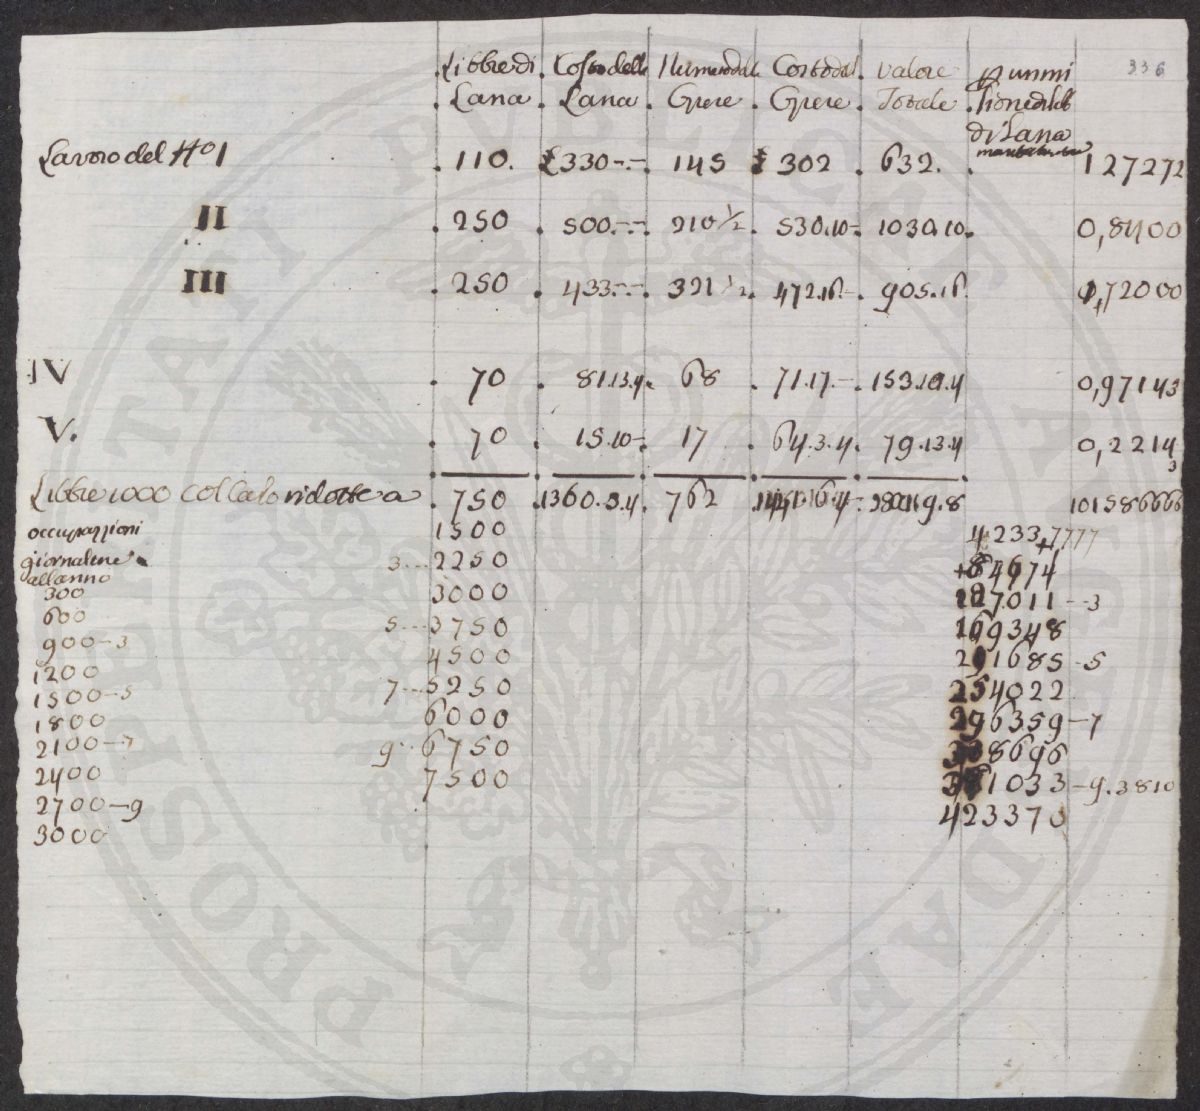 Libbre di Costo della Numero del Costo del valore p un mi 336
Lana Lana Opere Opere Totale lione di lib
di Lana
Lavoro del No I 110. £330-- 145 £ 302 632. 127272
II 250 500.-- 210 1/2 530.10- 1030.10. 0,84100
III 250 433.-- 321 1/2 472.16- 905.16 0,72000
IV 70 81.13.4 68 71.17.- 153.10.4 0,97143
V. 70 15.10- 17 64.3.4 79.13.4 0,22143
Libbre 1000 col calo ridotte a 750 1360.3.4 762 9.8 101586666
occupazzioni 1500 4233,7777
giornaliere 3...2250 84674
all anno 3000 127011--3
300 5...3750 169348
600 4500 211685-5
900-3 7...5250 254022
1200 6000 296359-7
1500-5 9..6750 338696
1800 7500 381033-9.3810
2100-7 423370
2400
2700-9
3000
PROSPERITATI PUBLICAE AUGENDAE